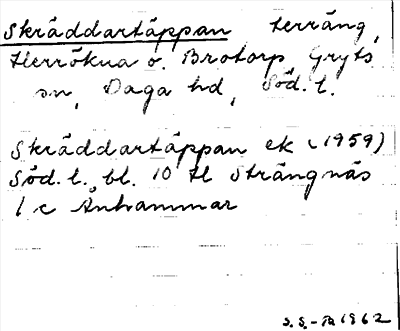 Skräddartäppan terräng,
Herrökna o. Brotorp, Gryts
sn, Daga hd, Söd. l.
Skräddartäppan ek (1959)
Söd. l., bl. 10 H Strängnäs
1 c Anhammar
1962